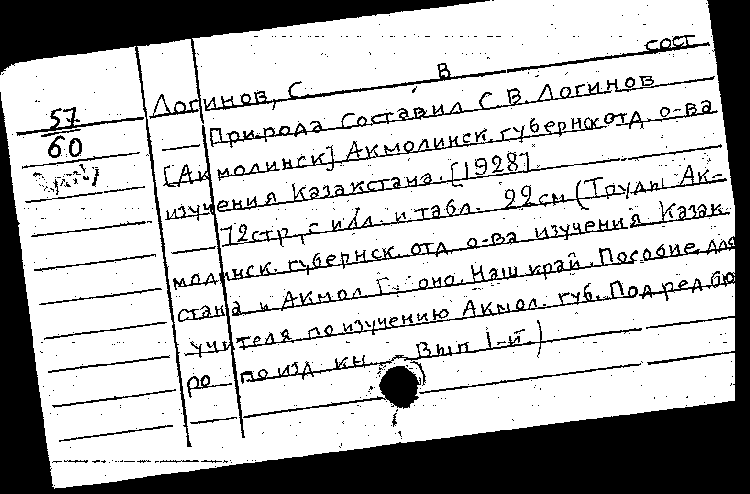 сост
57
60
Логинов, С. В
Природа Составил С. В. Логинов
[Акмолинск] Акмолинск. губернск. отд. о-ва
изучения Казакстана. [1928].
72 стр., с илл. и табл. 22 см (Труды Ак-
молинск. губернск. отд. о-ва изучения Казак
стана и Акмол Г. оно. Наш край. Пособие для
учителя по изучению Акмол. губ. Под ред. бю
ро по изд кн Вып 1-й.)